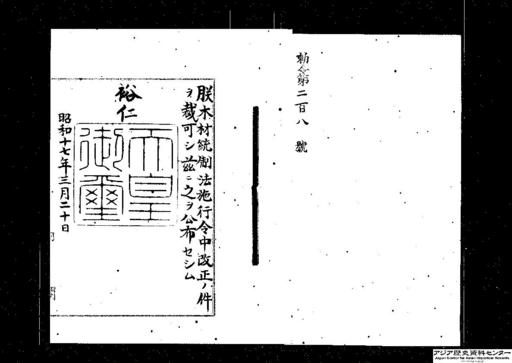 勅令第二百八號
朕木材統制法施行令中改正ノ件
ヲ裁可シ茲ニ之ヲ公布セシム
裕仁
天皇
御璽
昭和十七年三月二十日
アジア歴史資料センター
Japan Center for Asian Historical Records